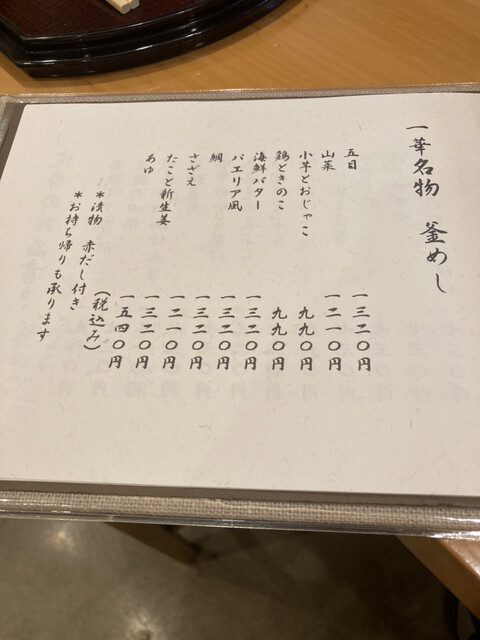 一華名物 釜めし
五目 一三二〇円
山菜 一二一〇円
小芋とおじゃこ 九九〇円
鶏ときのこ 九九〇円
海鮮バター 一三二〇円
パエリア風 一三二〇円
鯛 一三二〇円
さざえ 一二一〇円
たこと新生姜 一三二〇円
あゆ 一五四〇円
(税込み)
*漬物 赤だし付き
*お持ち帰りも承ります